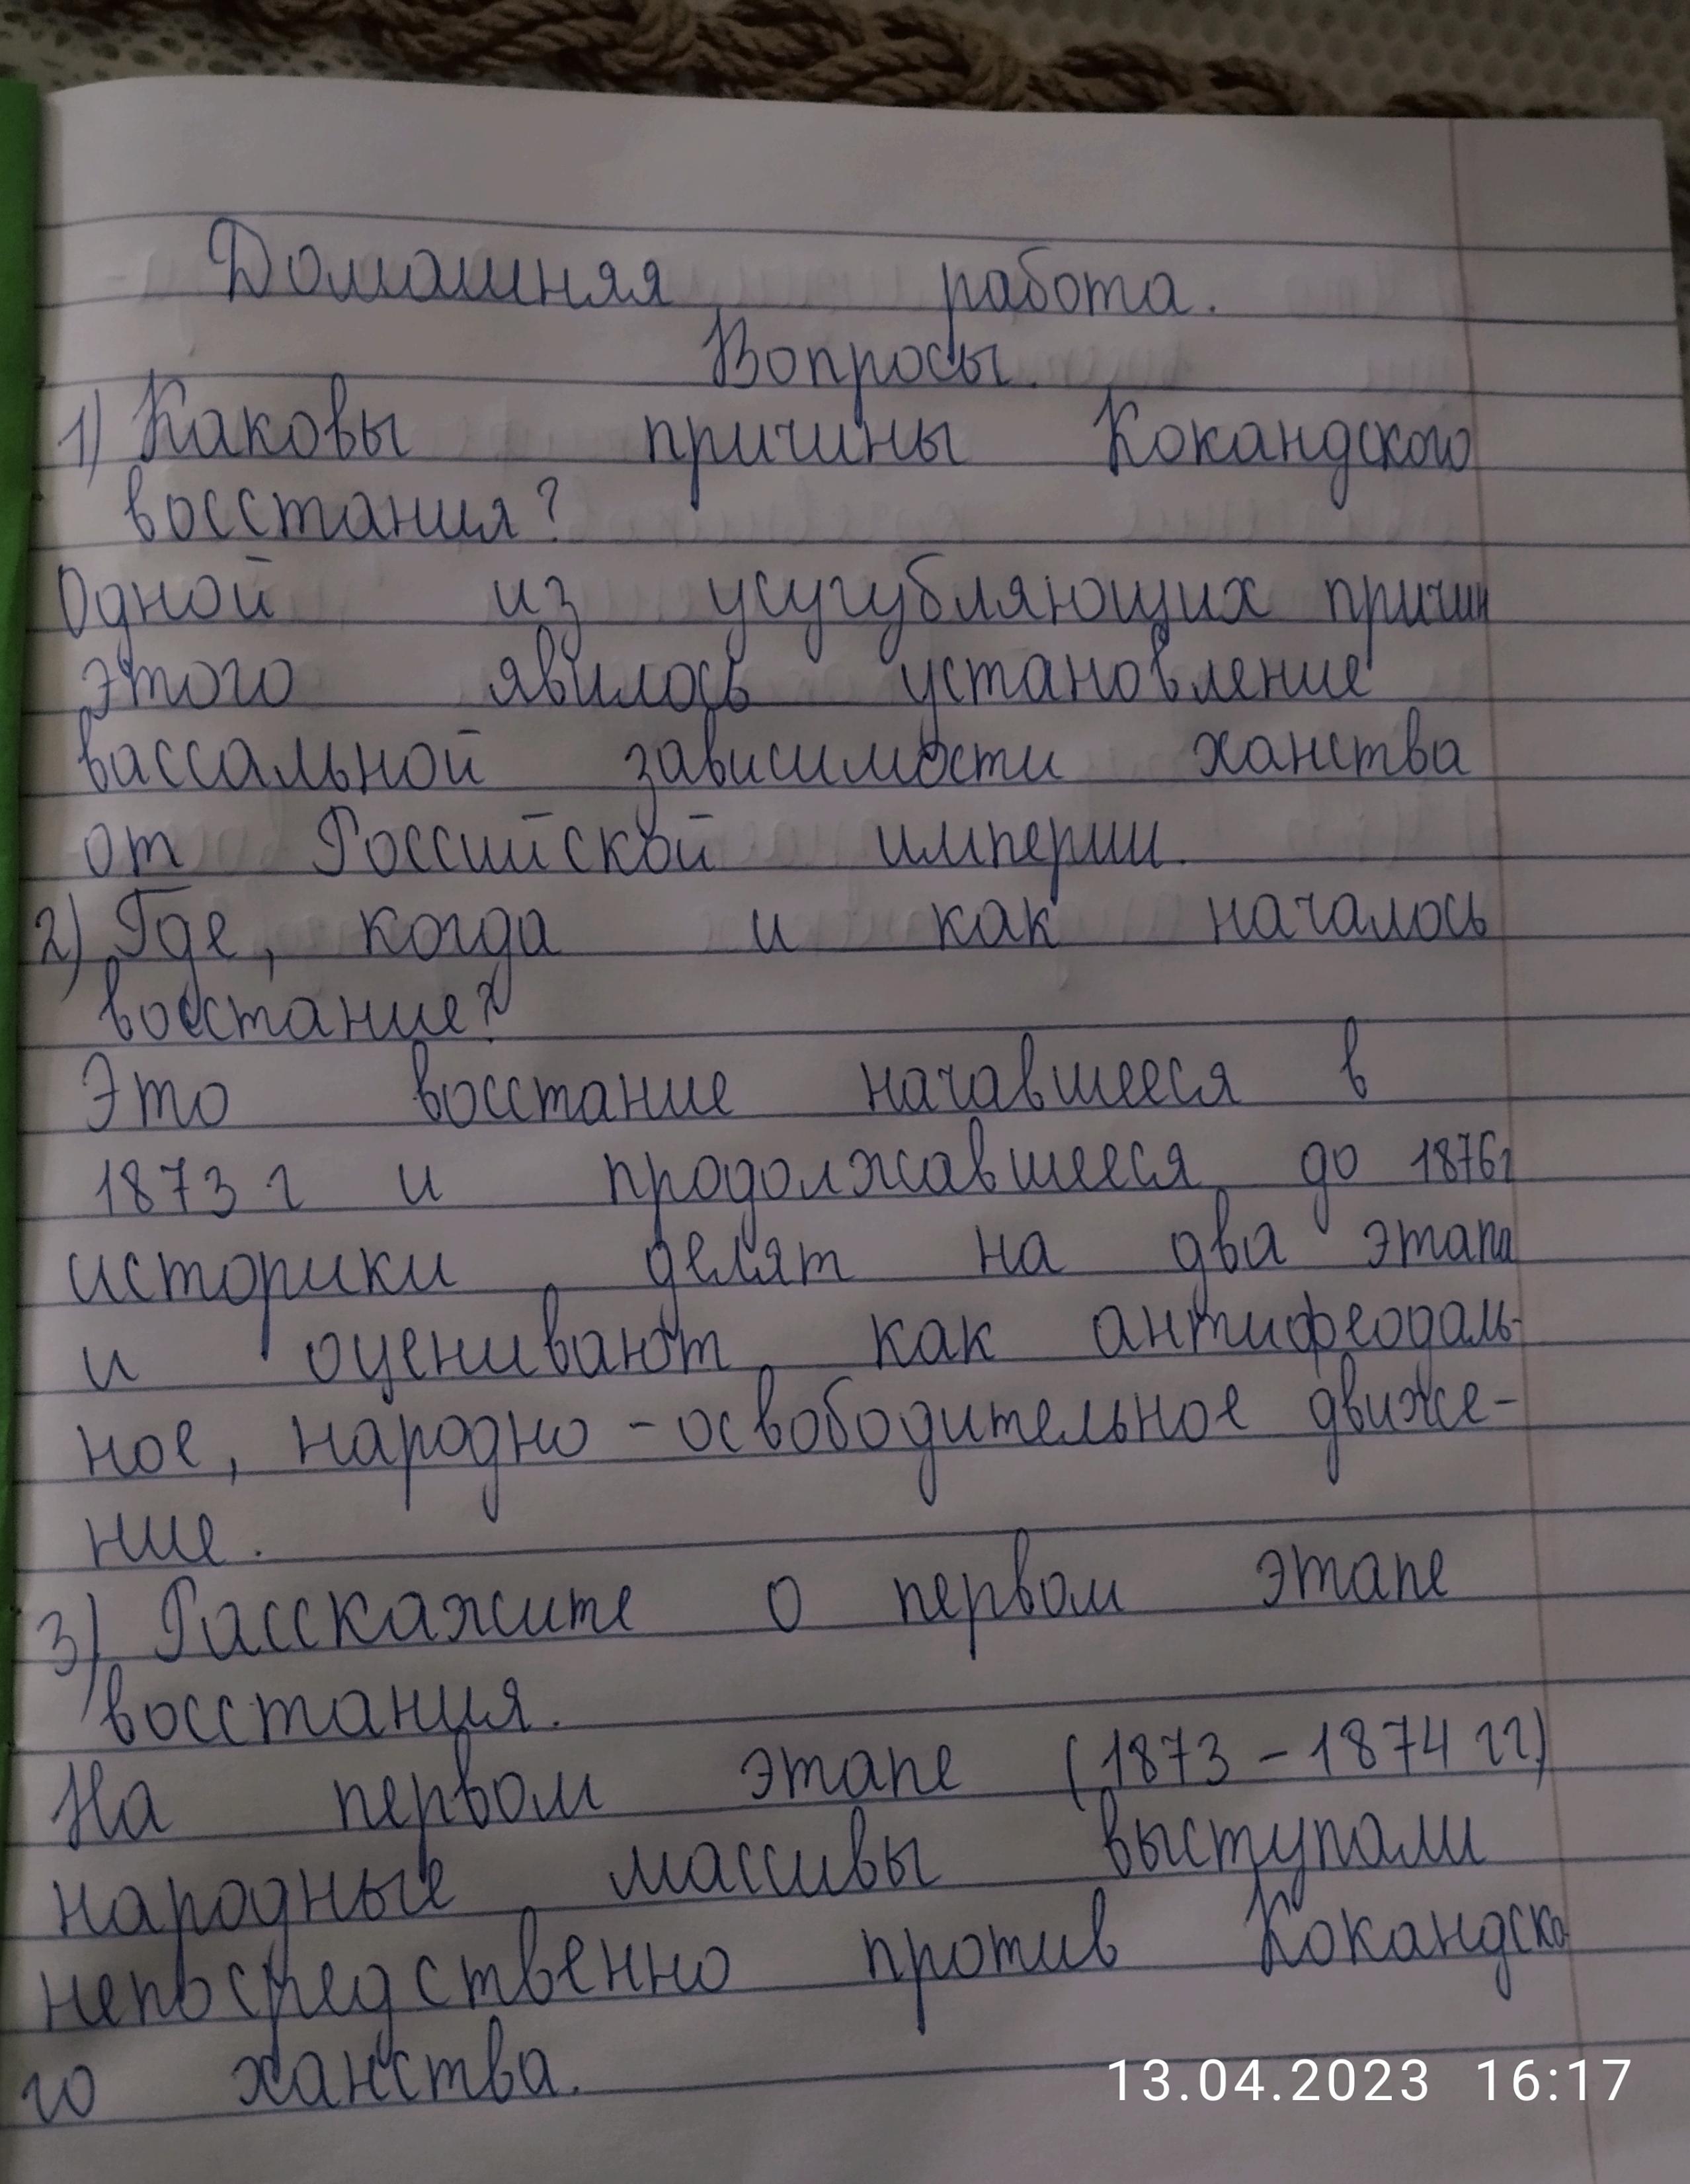 Домашняя работа.
Вопросы.
1) Каковы причины Кокандского
восстания?
Одной из усугубляющих причин
этого явилось установление
вассальной зависимости ханства
от Российской империи.
2) Где, когда и как началось
восстание?
Это восстание начавшееся в
1873 г и продолжавшееся до 1876г
историки делят на два этапа
и оценивают как антифеодаль-
ное, народно - освободительное движе-
ние.
3) Расскажите о первом этапе
восстания.
На первом этапе (1873 - 1874 гг)
народные массивы выступали
непосредственно против Кокандско-
го ханства.
13.04.2023 16:17